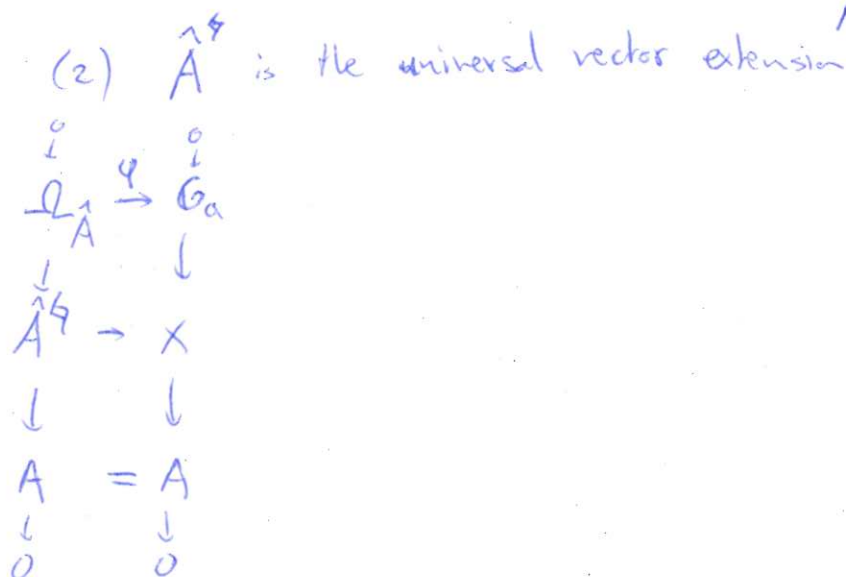 (2) Â^♮ is the universal vector extension
0 0
↓ ↓
Ω_Â —φ→ G_a
↓ ↓
Â^♮ → X
↓ ↓
A = A
↓ ↓
0 0